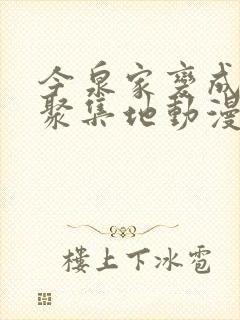 今泉家變成
聚集地動漫
樓上下冰雹